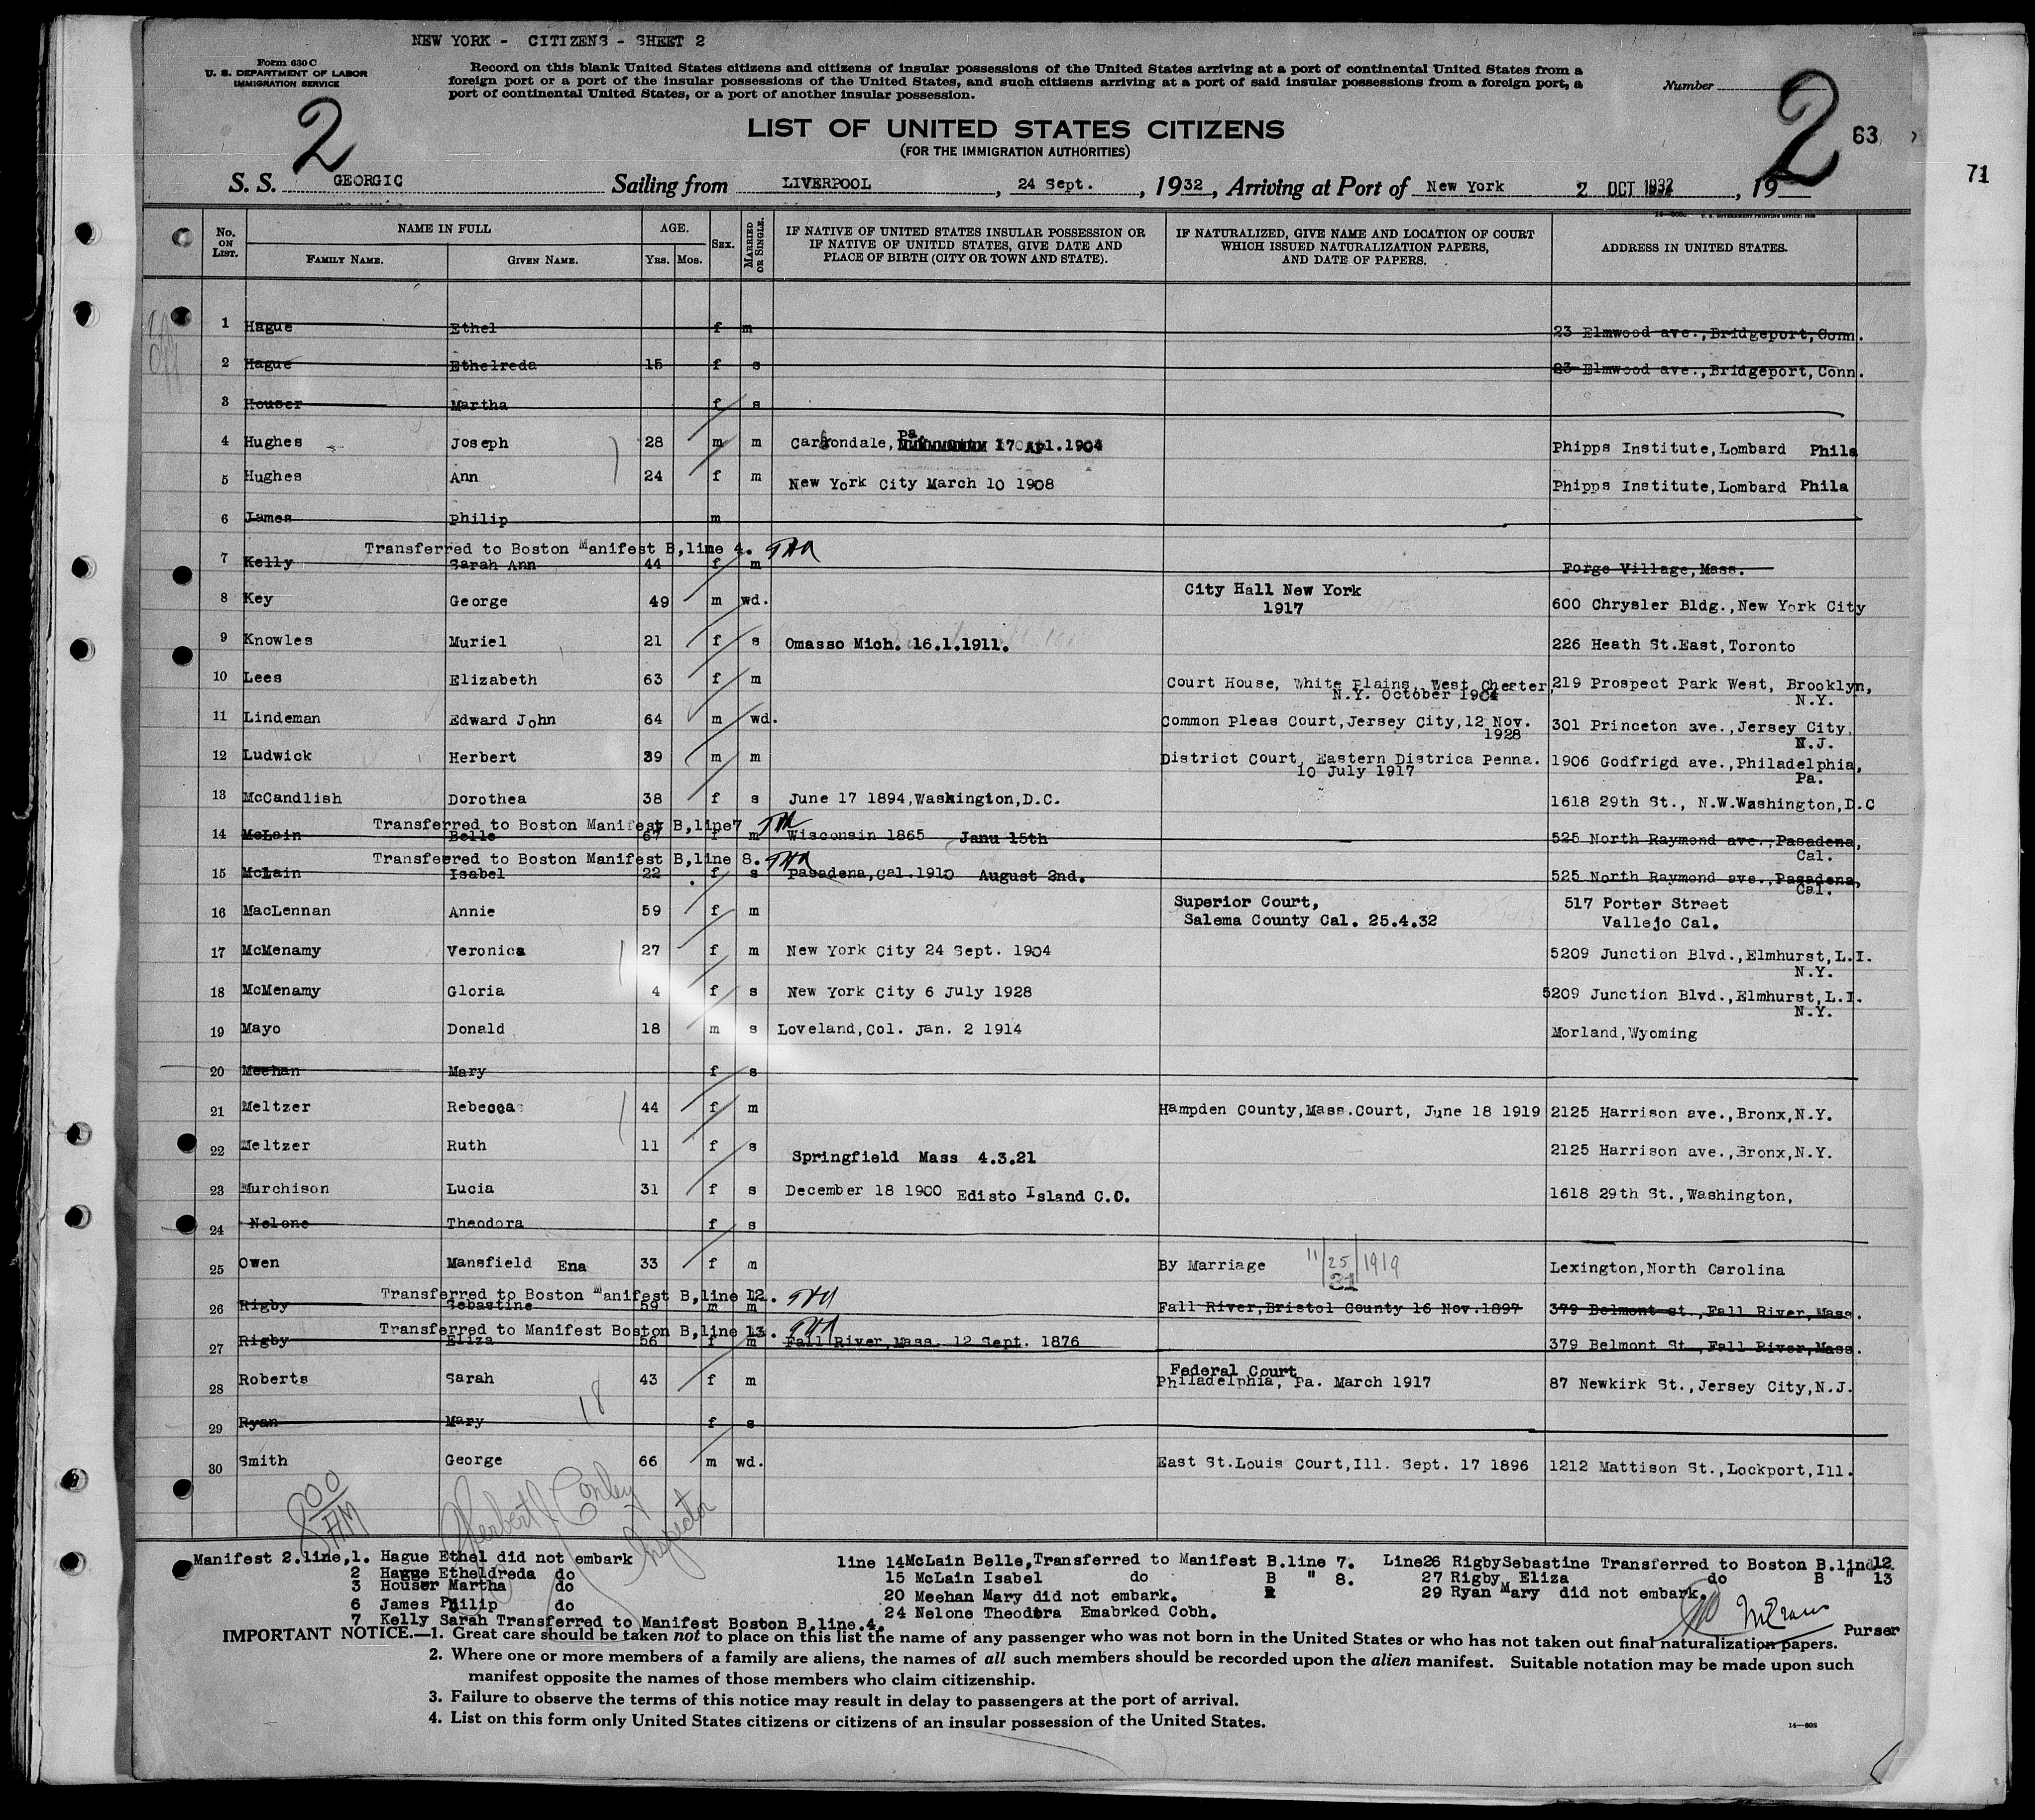 NEW YORK - CITIZENS - SHEET 2
Form 630 C
U. S. DEPARTMENT OF LABOR
IMMIGRATION SERVICE
Record on this blank United States citizens and citizens of insular possessions of the United States arriving at a port of continental United States from a
foreign port or a port of the insular possessions of the United States, and such citizens arriving at a port of said insular possessions from a foreign port, a
port of continental United States, or a port of another insular possession.
Number
2
2
63
71
LIST OF UNITED STATES CITIZENS
(FOR THE IMMIGRATION AUTHORITIES)
S. S. GEORGIC Sailing from LIVERPOOL, 24 Sept., 1932, Arriving at Port of New York 2 OCT 1932, 19
14—608c U. S. GOVERNMENT PRINTING OFFICE: 1930
No. ON LIST. NAME IN FULL FAMILY NAME. GIVEN NAME. AGE. YRS. MOS. SEX. MARRIED OR SINGLE. IF NATIVE OF UNITED STATES INSULAR POSSESSION OR IF NATIVE OF UNITED STATES, GIVE DATE AND PLACE OF BIRTH (CITY OR TOWN AND STATE). IF NATURALIZED, GIVE NAME AND LOCATION OF COURT WHICH ISSUED NATURALIZATION PAPERS, AND DATE OF PAPERS. ADDRESS IN UNITED STATES.
1 Hague Ethel f m 23 Elmwood ave.,Bridgeport,Conn.
2 Hague Ethelreda 15 f s 23 Elmwood ave.,Bridgeport,Conn.
3 Houser Martha f s
4 Hughes Joseph 28 m m Carbondale, Pa. 17 Apl.1904 Phipps Institute,Lombard Phila
5 Hughes Ann 24 f m New York City March 10 1908 Phipps Institute,Lombard Phila
6 James Philip m
Transferred to Boston Manifest B,line 4.
7 Kelly Sarah Ann 44 f m Forge Village,Mass.
8 Key George 49 m wd. City Hall New York 1917 600 Chrysler Bldg.,New York City
9 Knowles Muriel 21 f s Omasso Mich. 16.1.1911. 226 Heath St.East,Toronto
10 Lees Elizabeth 63 f m Court House, White Plains, West Chester, N.Y. October 1904 219 Prospect Park West, Brooklyn, N.Y.
11 Lindeman Edward John 64 m wd. Common Pleas Court,Jersey City,12 Nov. 1928 301 Princeton ave.,Jersey City, N.J.
12 Ludwick Herbert 39 m m District Court, Eastern Districa Penna. 10 July 1917 1906 Godfrigd ave.,Philadelphia, Pa.
13 McCandlish Dorothea 38 f s June 17 1894,Washington,D.C. 1618 29th St., N.W.Washington,D.C
Transferred to Boston Manifest B,line7
14 McLain Belle 67 f m Wisconsin 1865 Janu 15th 525 North Raymond ave.,Pasadena, Cal.
Transfeered to Boston Manifest B,line 8.
15 McLain Isabel 22 f s Pasadena,Cal.1910 August 2nd. 525 North Raymond ave.,Pasadena, Cal.
16 MacLennan Annie 59 f m Superior Court, Salema County Cal. 25.4.32 517 Porter Street Vallejo Cal.
17 McMenamy Veronica 27 f m New York City 24 Sept. 1904 5209 Junction Blvd.,Elmhurst,L.I. N.Y.
18 McMenamy Gloria 4 f s New York City 6 July 1928 5209 Junction Blvd.,Elmhurst,L.I. N.Y.
19 Mayo Donald 18 m s Loveland,Col. Jan. 2 1914 Morland,Wyoming
20 Meehan Mary f s
21 Meltzer Rebecca 44 f m Hampden County,Mass.Court, June 18 1919 2125 Harrison ave.,Bronx,N.Y.
22 Meltzer Ruth 11 f s Springfield Mass 4.3.21 2125 Harrison ave.,Bronx,N.Y.
23 Murchison Lucia 31 f s December 18 1900 Edisto Island C.C. 1618 29th St.,Washington,
24 Nelone Theodora f s
25 Owen Mansfield Ena 33 f m By Marriage 11/25/1919 Lexington,North Carolina
Transferred to Boston Manifest B,line 12.
26 Rigby Sebastine 59 m m Fall River,Bristol County 16 Nov.1897 379 Belmont st.,Fall River,Mass.
Transferred to Manifest Boston B,line 13.
27 Rigby Eliza 56 f m Fall River,Mass. 12 Sept. 1876 379 Belmont St.,Fall River,Mass.
28 Roberts Sarah 43 f m Federal Court Philadelphia, Pa. March 1917 87 Newkirk St.,Jersey City,N.J.
29 Ryan Mary f s
18
30 Smith George 66 m wd. East St.Louis Court,Ill. Sept. 17 1896 1212 Mattison St.,Lockport,Ill.
800 AM
Herbert J Conley
Inspector
Manifest 2.line,1. Hague Ethel did not embark
2 Hague Etheldreda do
3 Houser Martha do
6 James Philip do
7 Kelly Sarah Transferred to Manifest Boston B.line.4.
line 14McLain Belle,Transferred to Manifest B.line 7.
15 McLain Isabel do B " 8.
20 Meehan Mary did not embark.
24 Nelone Theodora Emabrked Cobh.
Line26 RigbySebastine Transferred to Boston B.line12.
27 Rigby Eliza do B " 13
29 Ryan Mary did not embark.
Purser
IMPORTANT NOTICE.—1. Great care should be taken not to place on this list the name of any passenger who was not born in the United States or who has not taken out final naturalization papers.
2. Where one or more members of a family are aliens, the names of all such members should be recorded upon the alien manifest. Suitable notation may be made upon such
manifest opposite the names of those members who claim citizenship.
3. Failure to observe the terms of this notice may result in delay to passengers at the port of arrival.
4. List on this form only United States citizens or citizens of an insular possession of the United States.
14—608